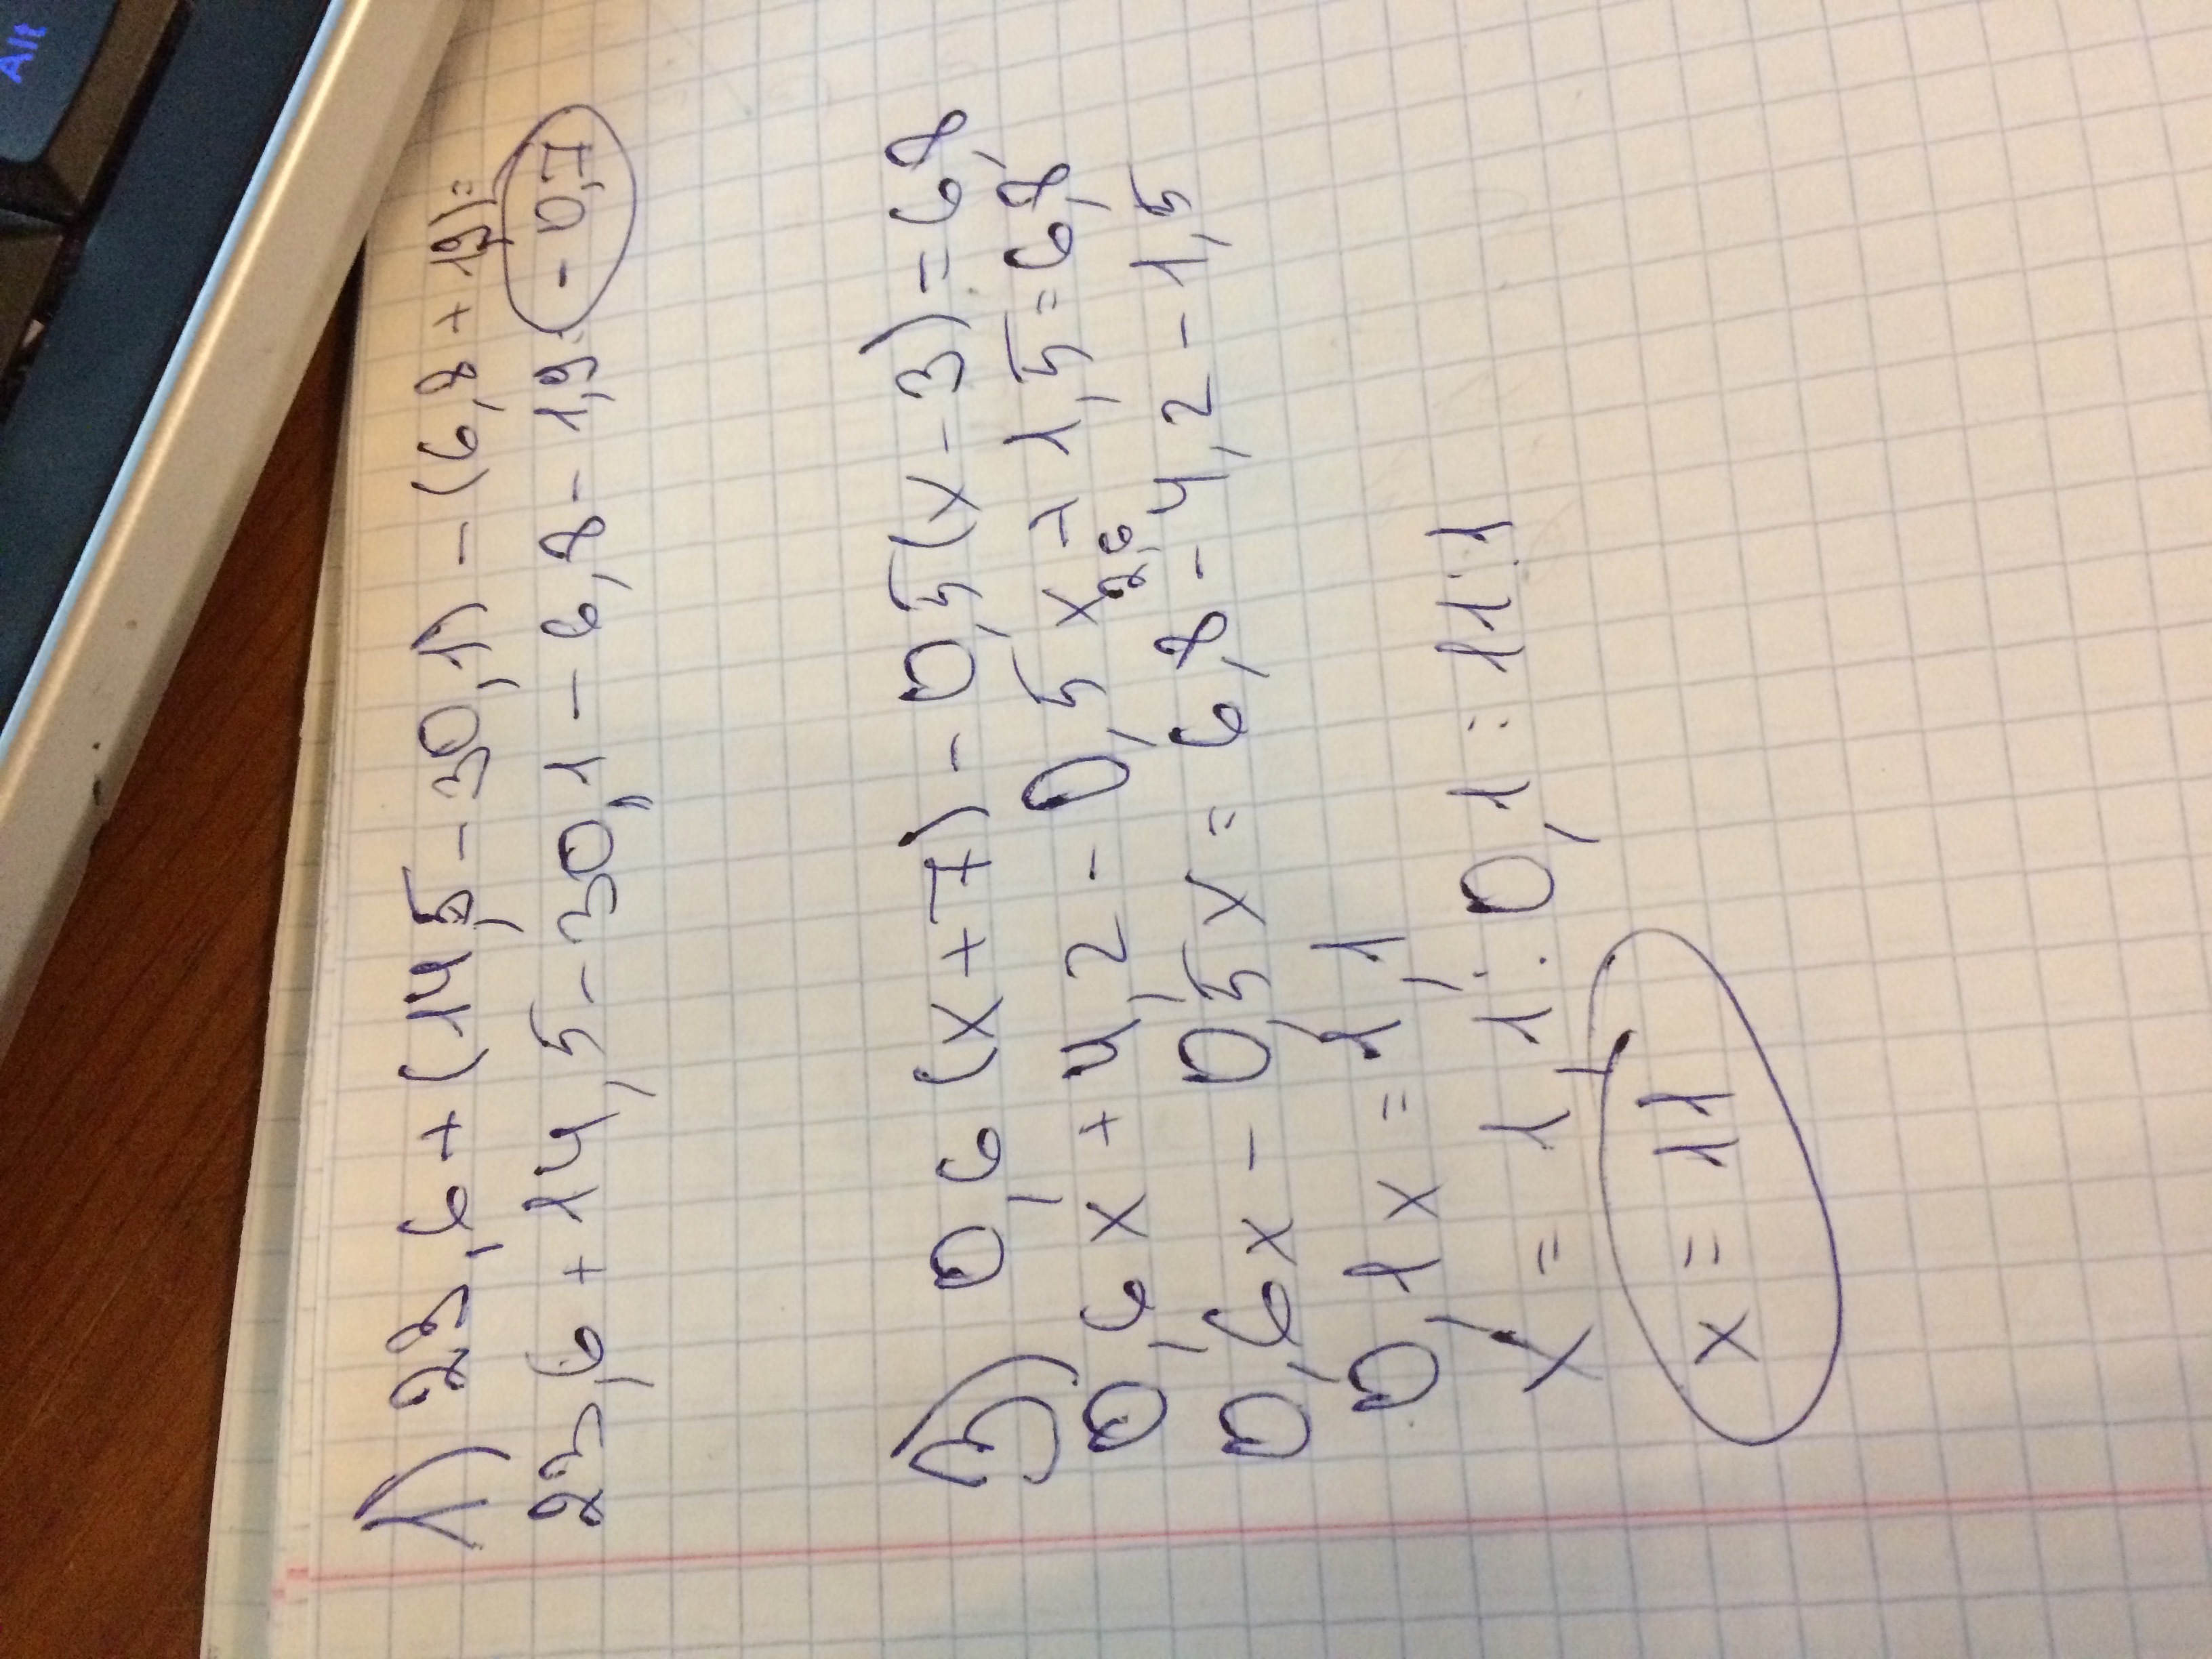 Alt
1) 23,6 + (14,5 - 30,1) - (6,8 + 1,9) =
23,6 + 14,5 - 30,1 - 6,8 - 1,9 = - 0,7
3) 0,6 (x + 7) - 0,5 (x - 3) = 6,8
0,6 x + 4,2 - 0,5 x + 1,5 = 6,8
2,6
0,6 x - 0,5 x = 6,8 - 4,2 - 1,5
0,1 x = 1,1
x = 1,1 : 0,1 = 11 : 1
x = 11